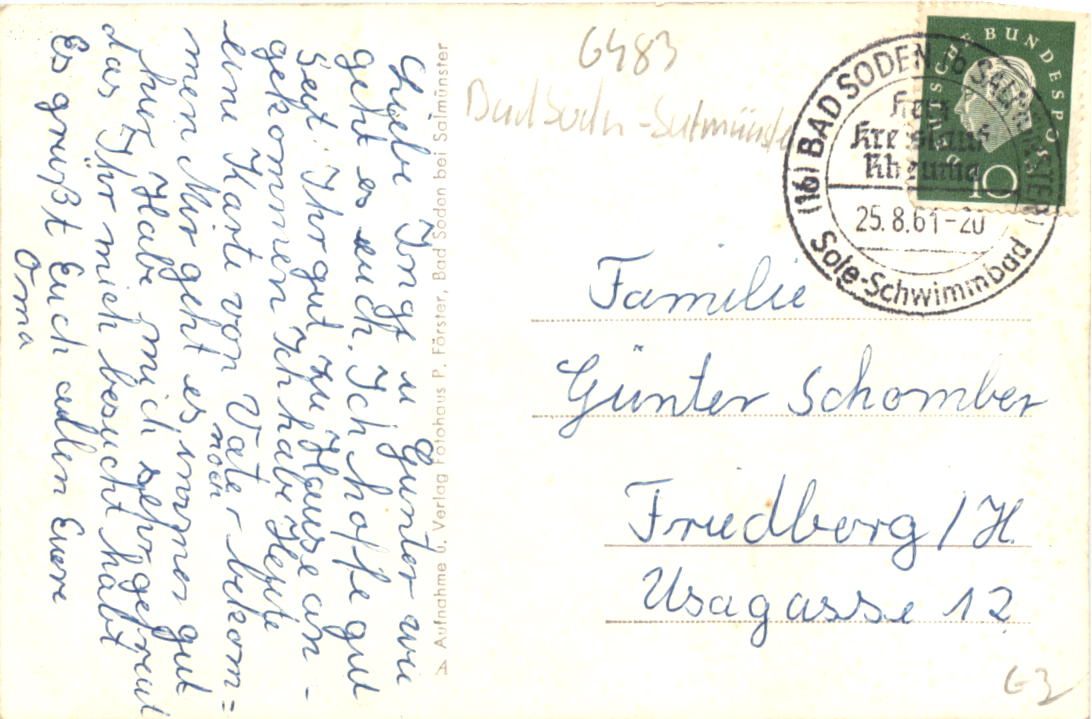 Liebe Inge u Günter wie
geht es euch. Ich hoffe gut
Seit Ihr gut zu Hause an-
gekommen Ich habe Heute
eine Karte von Vater bekom=
men Mir geht es immer noch gut
nur Habe mich sehr gefreut
das Ihr mich besucht habt
Es grüßt Euch allen Euere
Oma
A Aufnahme u. Verlag Fotohaus P. Förster, Bad Soden bei Salmünster
6483
Bad Soden-Salmünster
DEUTSCHE BUNDESPOST
10
(16) BAD SODEN b SALMÜNSTER
Herz
Kreislauf
Rheuma
25.8.61-20
Sole-Schwimmbad
Familie
Günter Schomber
Friedberg/H.
Usagasse 12
G3